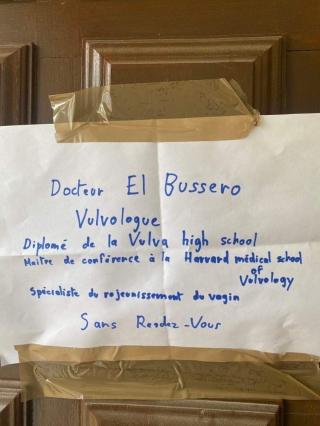 Docteur El Bussero
Vulvologue
Diplomé de la Vulva high school
Maitre de conférence à la Harvard médical school
of
Vulvology
Spécialiste du rajeunissement du vagin
Sans Rendez-Vous